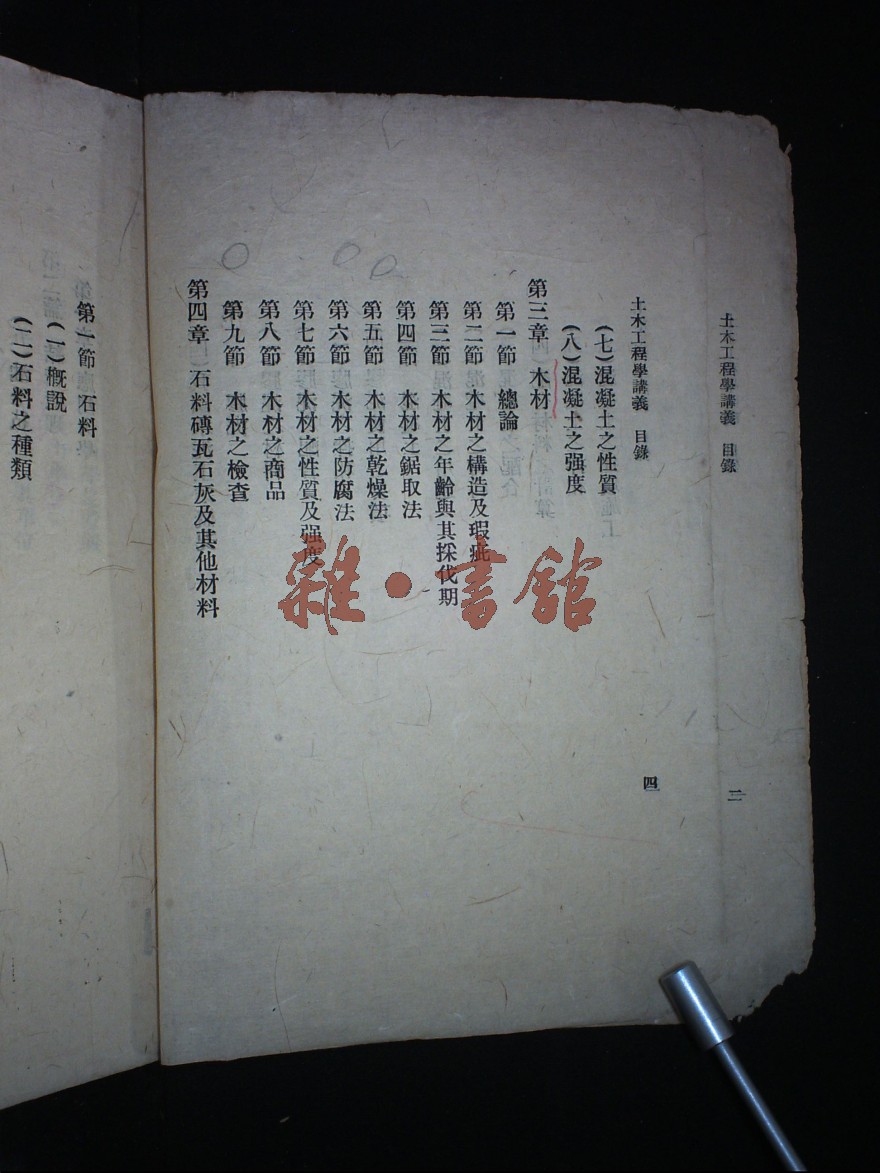 土木工程學講義　目錄
二
土木工程學講義　目錄
四
(七)混凝土之性質
(八)混凝土之强度
第三章　木材
第一節　總論
第二節　木材之構造及瑕疵
第三節　木材之年齡與其採伐期
第四節　木材之鋸取法
第五節　木材之乾燥法
第六節　木材之防腐法
第七節　木材之性質及强度
第八節　木材之商品
第九節　木材之檢查
第四章　石料磚瓦石灰及其他材料
第一節　石料
(一)概說
(二)石料之種類
雜·書館